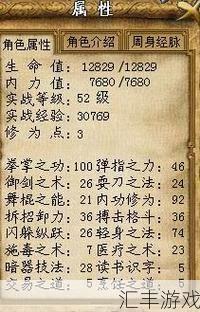 属性
角色属性 角色介绍 周身经脉
生命值: 12829/12829
内力值: 7680/7680
实战等級: 52 級
实战经验: 30769
修为点: 3
拳掌之功: 100 弹指之力: 46
御剑之术: 26 耍刀之法: 24
舞棍之能: 21 内功修为: 92
拆招卸力: 36 搏击格斗: 34
闪躲纵跃: 26 轻身之法: 74
施毒之术: 7 医疗之术: 23
暗器技法: 28 读书识字: 5
交易之道: 5 烹饪之道: 5
汇丰游戏